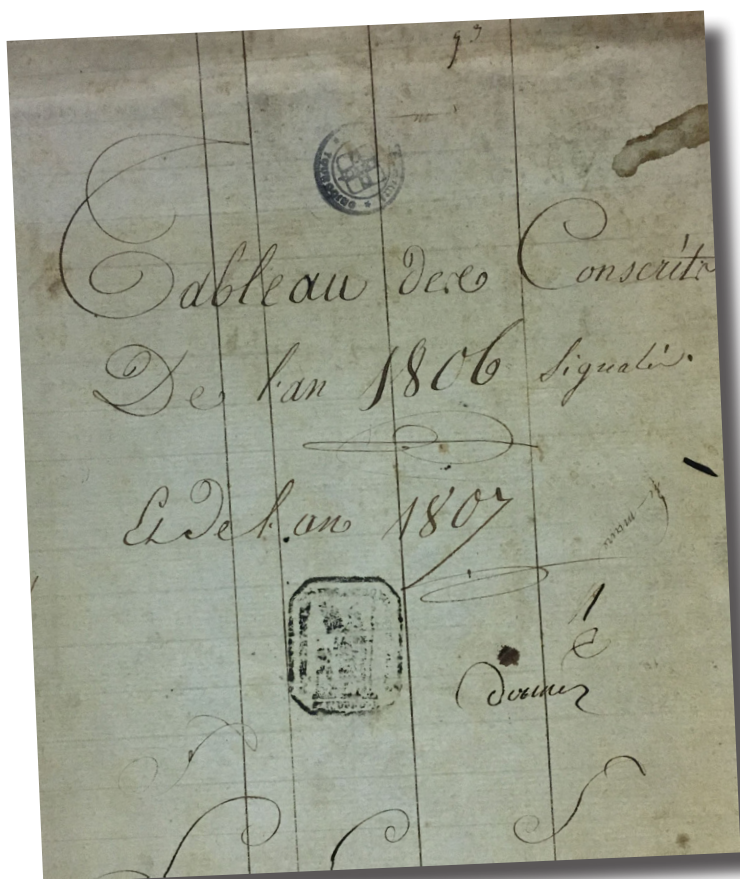 Tableau des Conscrits
De l'an 1806 Signalés.
Et De l'an 1807